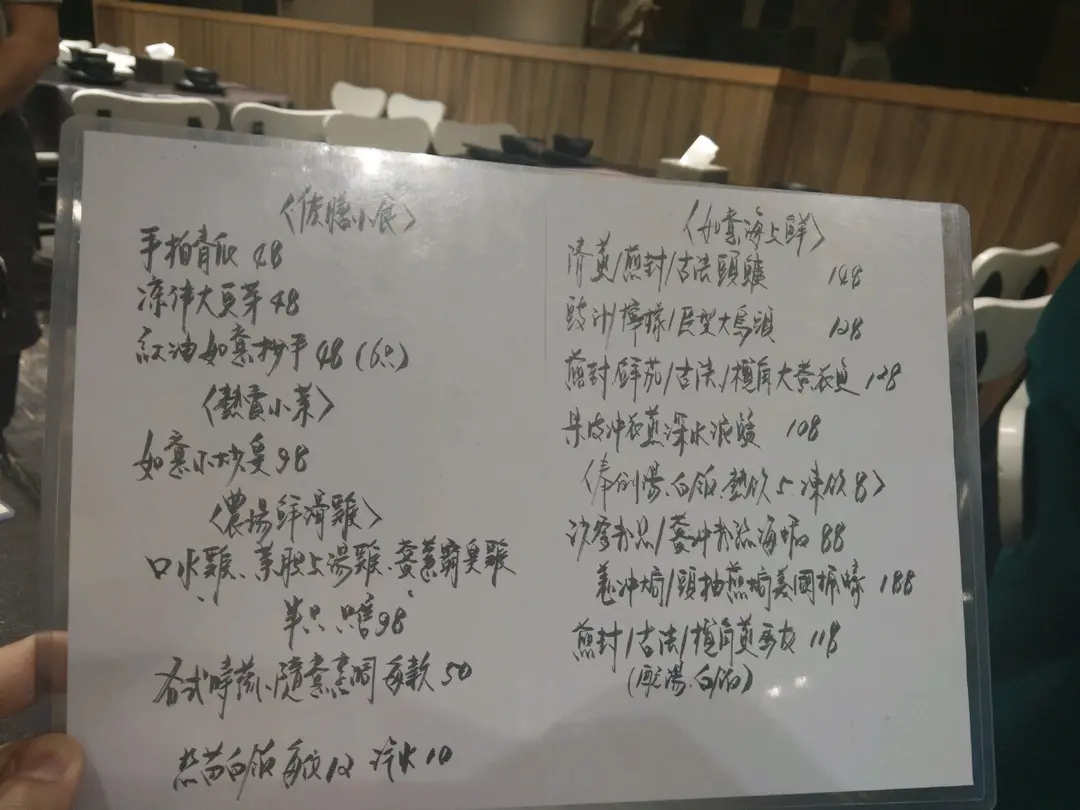 〈佐膳小食〉
手拍青瓜 48
涼伴大豆芽 48
紅油如意抄手 48 (6只)
〈熱賣小菜〉
如意小炒皇 98
〈農場鮮滑雞〉
口水雞、上湯雞、蔥霸皇雞
半只 98
各式時蔬、隨意烹調 每款 50
絲苗白飯 每位 12 汽水 10
〈如意海上鮮〉
清蒸/煎封/古法頭 148
豉汁/檸檬/巨型大烏頭 128
煎封/鮮茄/古法/椒角大黃衣魚 128
果皮冲衣蒸深水泥鯭 108
〈奉例湯、白飯、熱飲5、凍飲8〉
沙爹粉絲/薑冲粉絲海 88
薑冲焗/頭抽煎焗美國 188
煎封/古法/椒角蒸馬友 118
(跟湯、白飯)